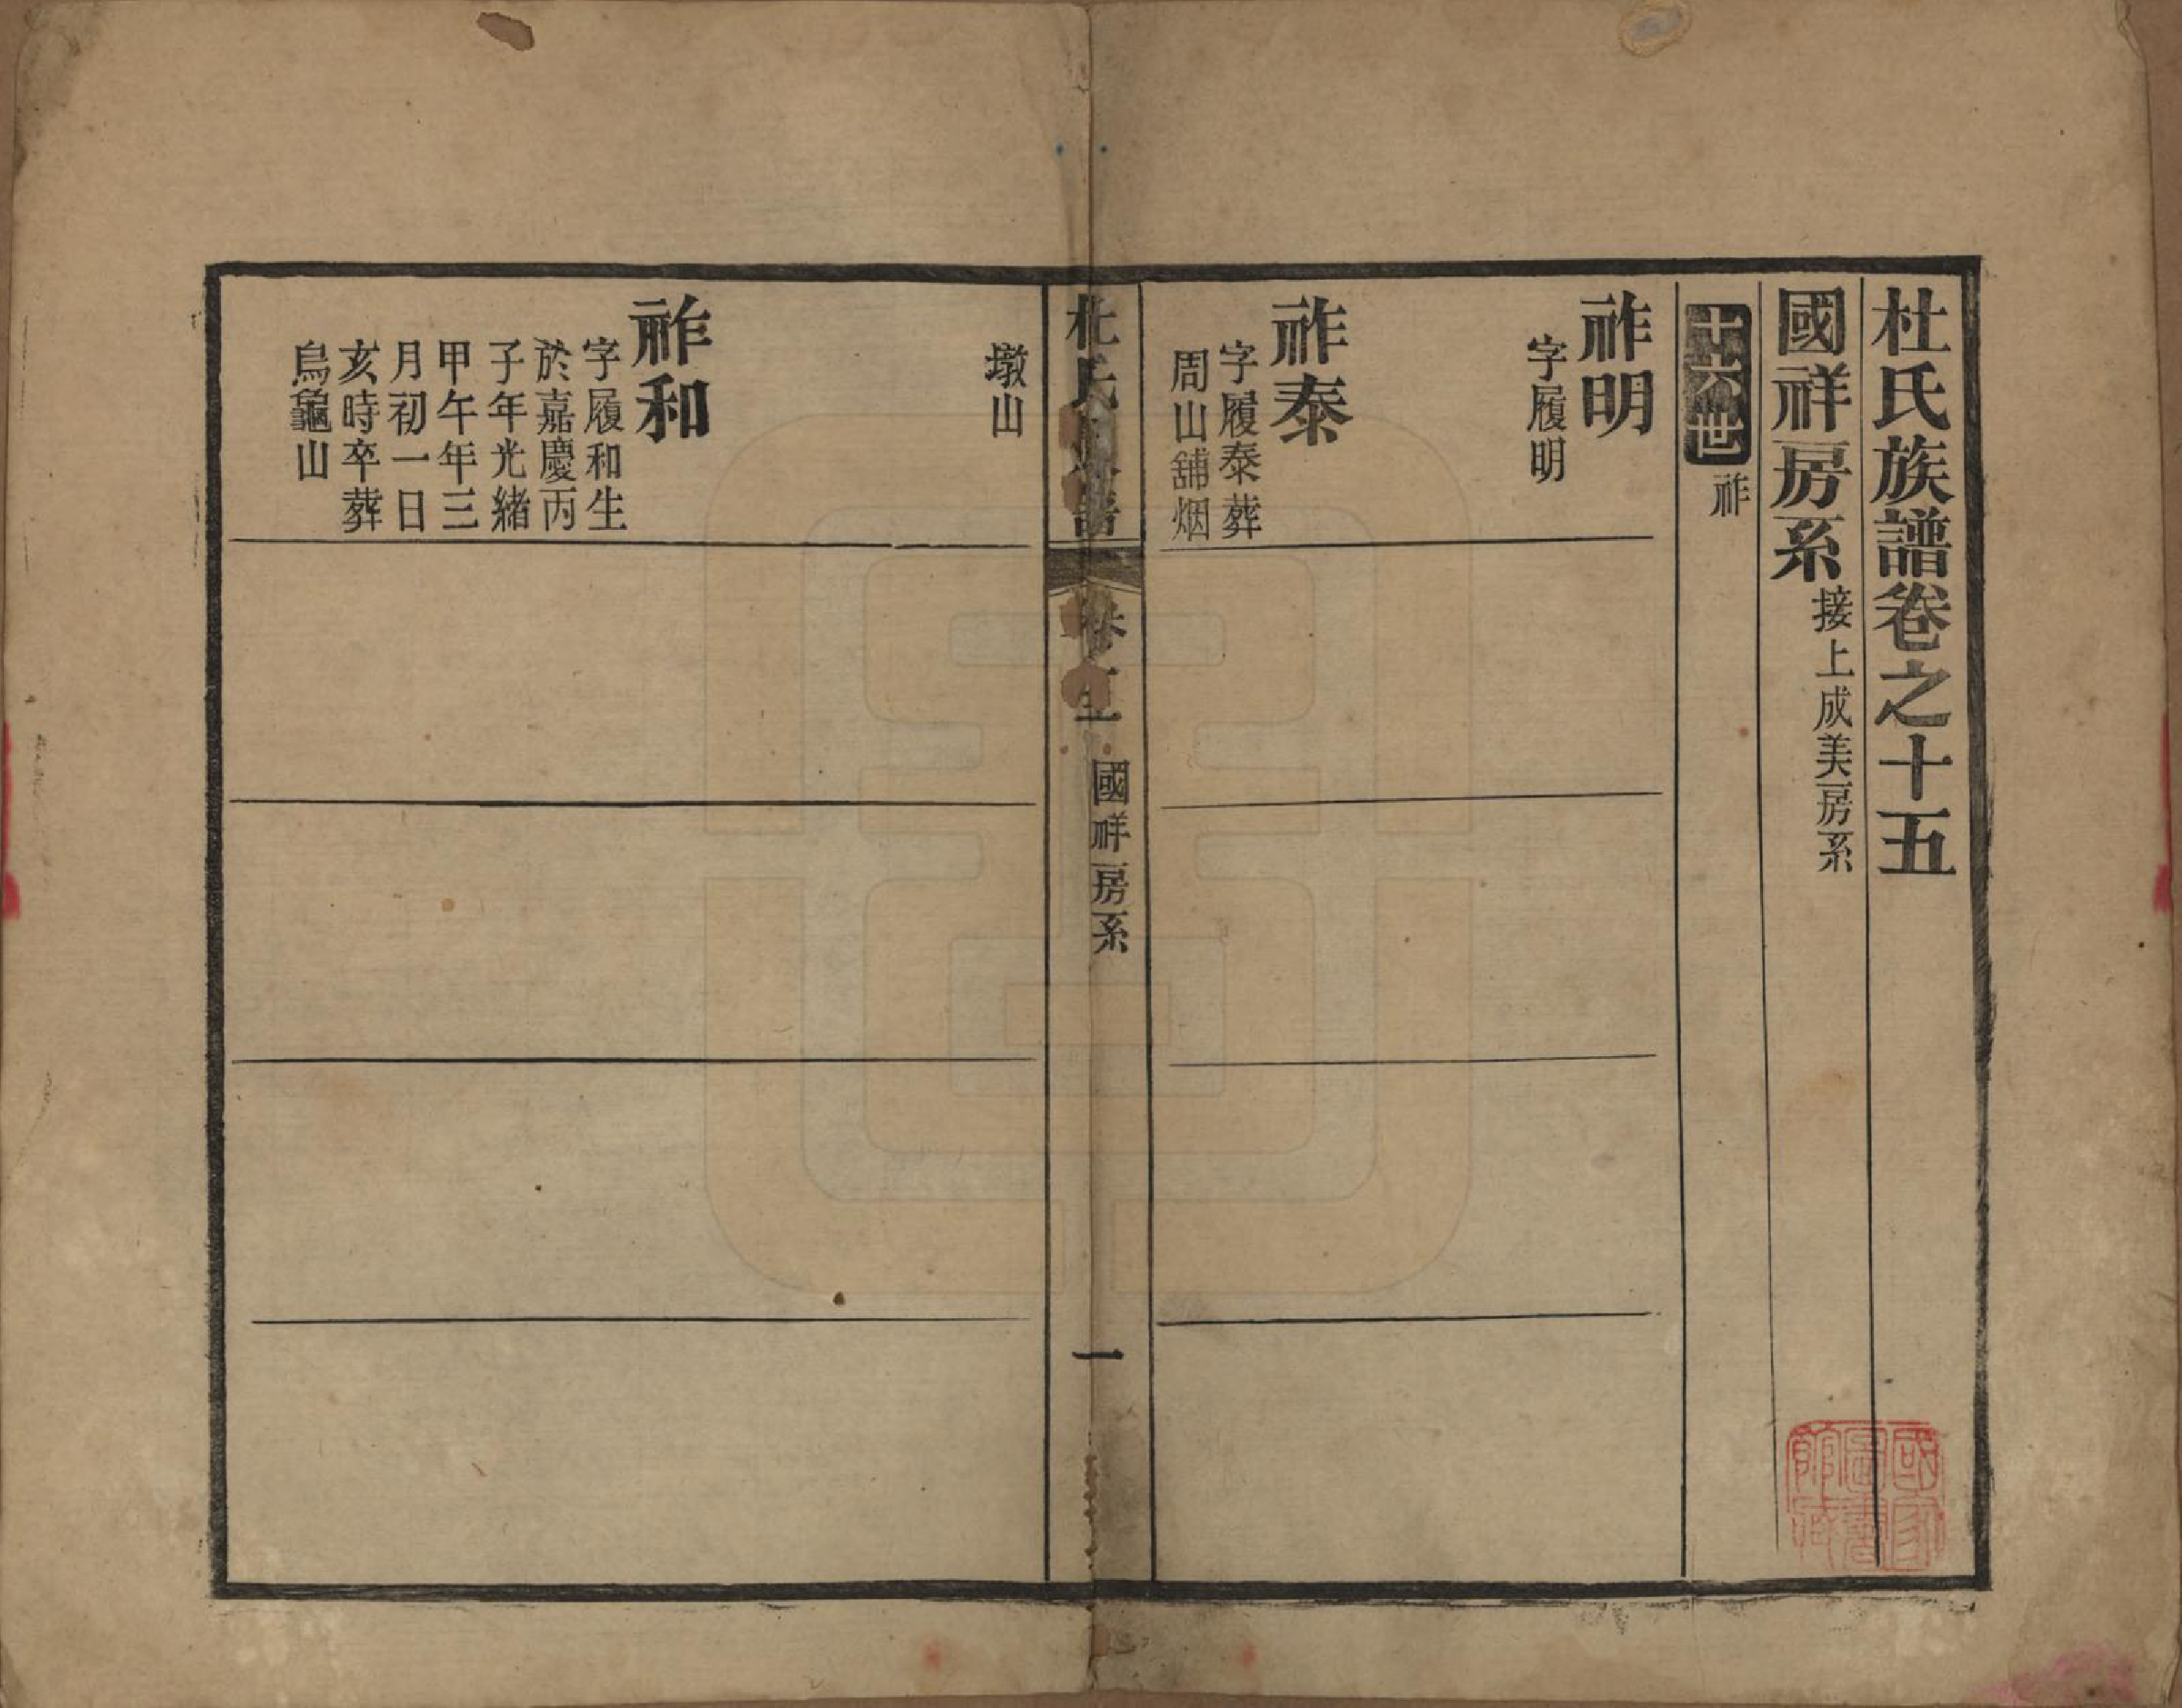 杜氏族譜卷之十五
國祥房系接上成美房系
十六世祚
祚明
字履明
祚泰
字履泰葬
周山舖烟
杜氏族譜 卷十五 國祥房系 一
墩山
祚和
字履和生
於嘉慶丙
子年光緒
甲午年三
月初一日
亥時卒葬
烏龜山
國家
圖書
館藏